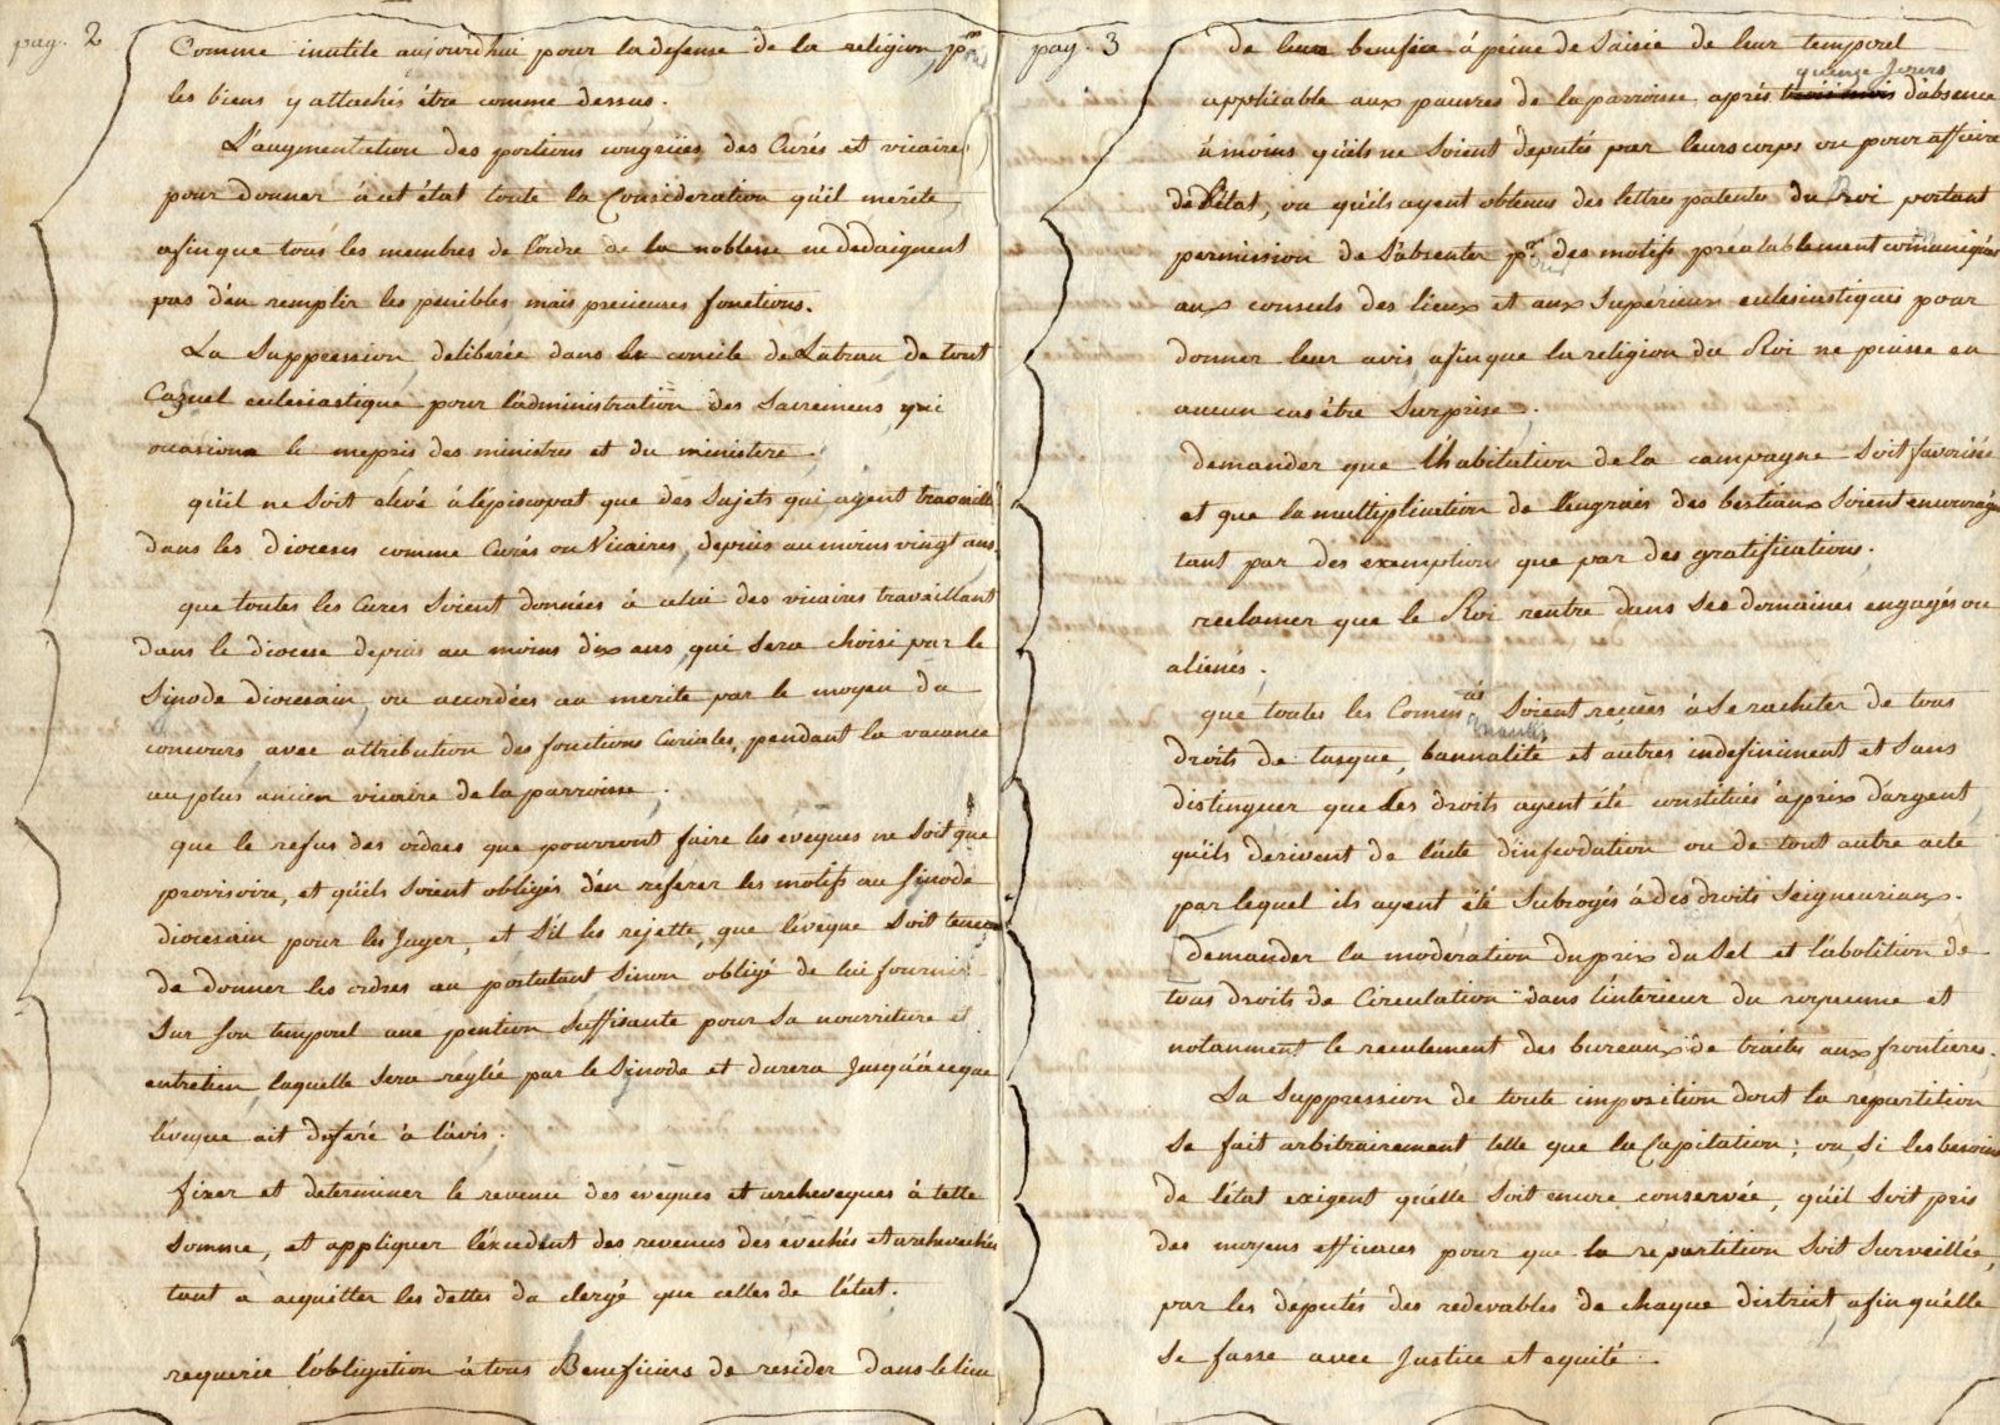 pag. 2
Comme inutile aujourd'hui pour la defense de la religion, pr
les biens y attachés être comme dessus.
L'augmentation des portions congrües des Curés et vicaires
pour donner à cet état toute la Consideration qu'il merite
afin que tous les membres de l'ordre de la noblesse ne dedaignent
pas d'en remplir les penibles mais precieuses fonctions.
La Suppression deliberée dans le concile de Latran de tout
Cazuel eclesiastique pour l'administration des Sacremens qui
occasione le mepris des ministres et du ministere.
qu'il ne Soit elevé à l'épiscopat que des Sujets qui ayent travaillé
dans les dioceses comme Curés ou Vicaires, depuis au moins vingt ans.
que toutes les Cures Soient données à celui des vicaires travaillant
dans le diocese depuis au moins dix ans, qui Sera choisi par le
Sinode diocesain, ou accordées au merite par le moyen du
concours avec attribution des fonctions Curiales, pendant la vacance
au plus ancien vicaire de la parroisse.
que le refus des ordres que pourront faire les eveques ne Soit que
provisoire, et qu'ils Soient obligés d'en referer les motifs au Sinode
diocesain pour les Juger, et S'il les rejette, que l'éveque Soit tenu
de donner les ordres au postulant Sinon obligé de lui fournir
Sur Son temporel une pention Suffisante pour Sa nourriture et
entretien laquelle Sera réglée par le Sinode et durera Jusqu'à ceque
l'éveque ait deferé à l'avis.
fixer et determiner le revenu des eveques et archeveques à telle
Somme, et appliquer l'éxcedent des revenus des évechés et archevechés
tant a acquitter les dettes du clergé que celles de l'état.
requerir l'obligation à tous Beneficiers de resider dans le lieu
pag. 3
de leur benefice à peine de Saisie de leur temporel
quinze Jours
applicable aux pauvres de la parroisse, aprés trois mois d'absence
à moins qu'ils ne Soient deputés par leurs corps ou pour affaire
de l'état, ou qu'ils ayent obtenus des lettres patentes du Roi portant
permission de S'absenter pr des motifs préalablement comuniqués
aux consuls des lieux et aux Superieurs eclesiastiques pour
donner leur avis, afin que la religion du Roi ne puisse en
aucun cas être Surprise.
demander que l'habitation de la campagne Soit favorisée
et que la multiplication de l'engrais des bestiaux Soient encouragés
tant par des exemptions que par des gratifications.
reclamer que le Roi rentre dans Ses domaines engagés ou
alienés.
que toutes les Comm.tés Soient reçües à Se racheter de tous
droits de tasque, bannalité et autres indefiniment et Sans
distinguer que les droits ayent été constitués à prix d'argent
qu'ils derivent de l'acte d'infeodation ou de tout autre acte
par lequel ils ayent été Subrogés à des droits Seigneuriaux.
demander la moderation du prix du Sel et l'abolition de
tous droits de Circulation dans l'interieur du royaume et
notamment le reculement des bureaux de traites aux frontieres.
La Suppression de toute imposition dont la repartition
Se fait arbitrairement telle que la Capitation; ou Si les besoins
de l'état exigent qu'elle Soit encore conservée, qu'il Soit pris
des moyens efficaces pour que la repartition Soit Surveillée,
par les deputés des redevables de chaque district, afin qu'elle
Se fasse avec Justice et equité.